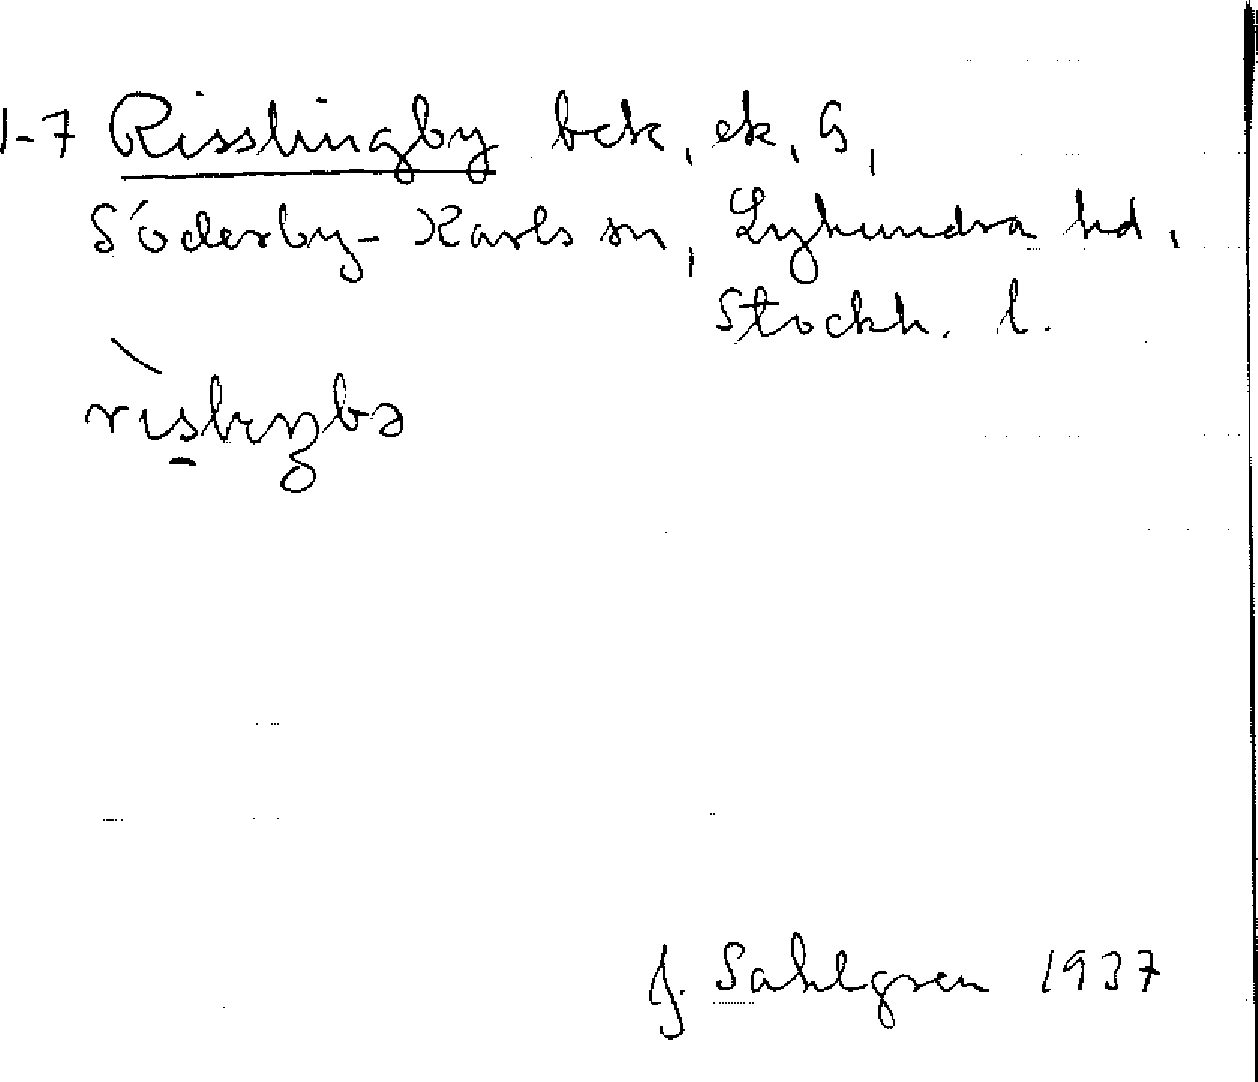 1-7 Risslingby bek, ek, G,
Söderby-Karls sn, Lyhundra hd,
Stockh. l.
J. Sahlgren 1937